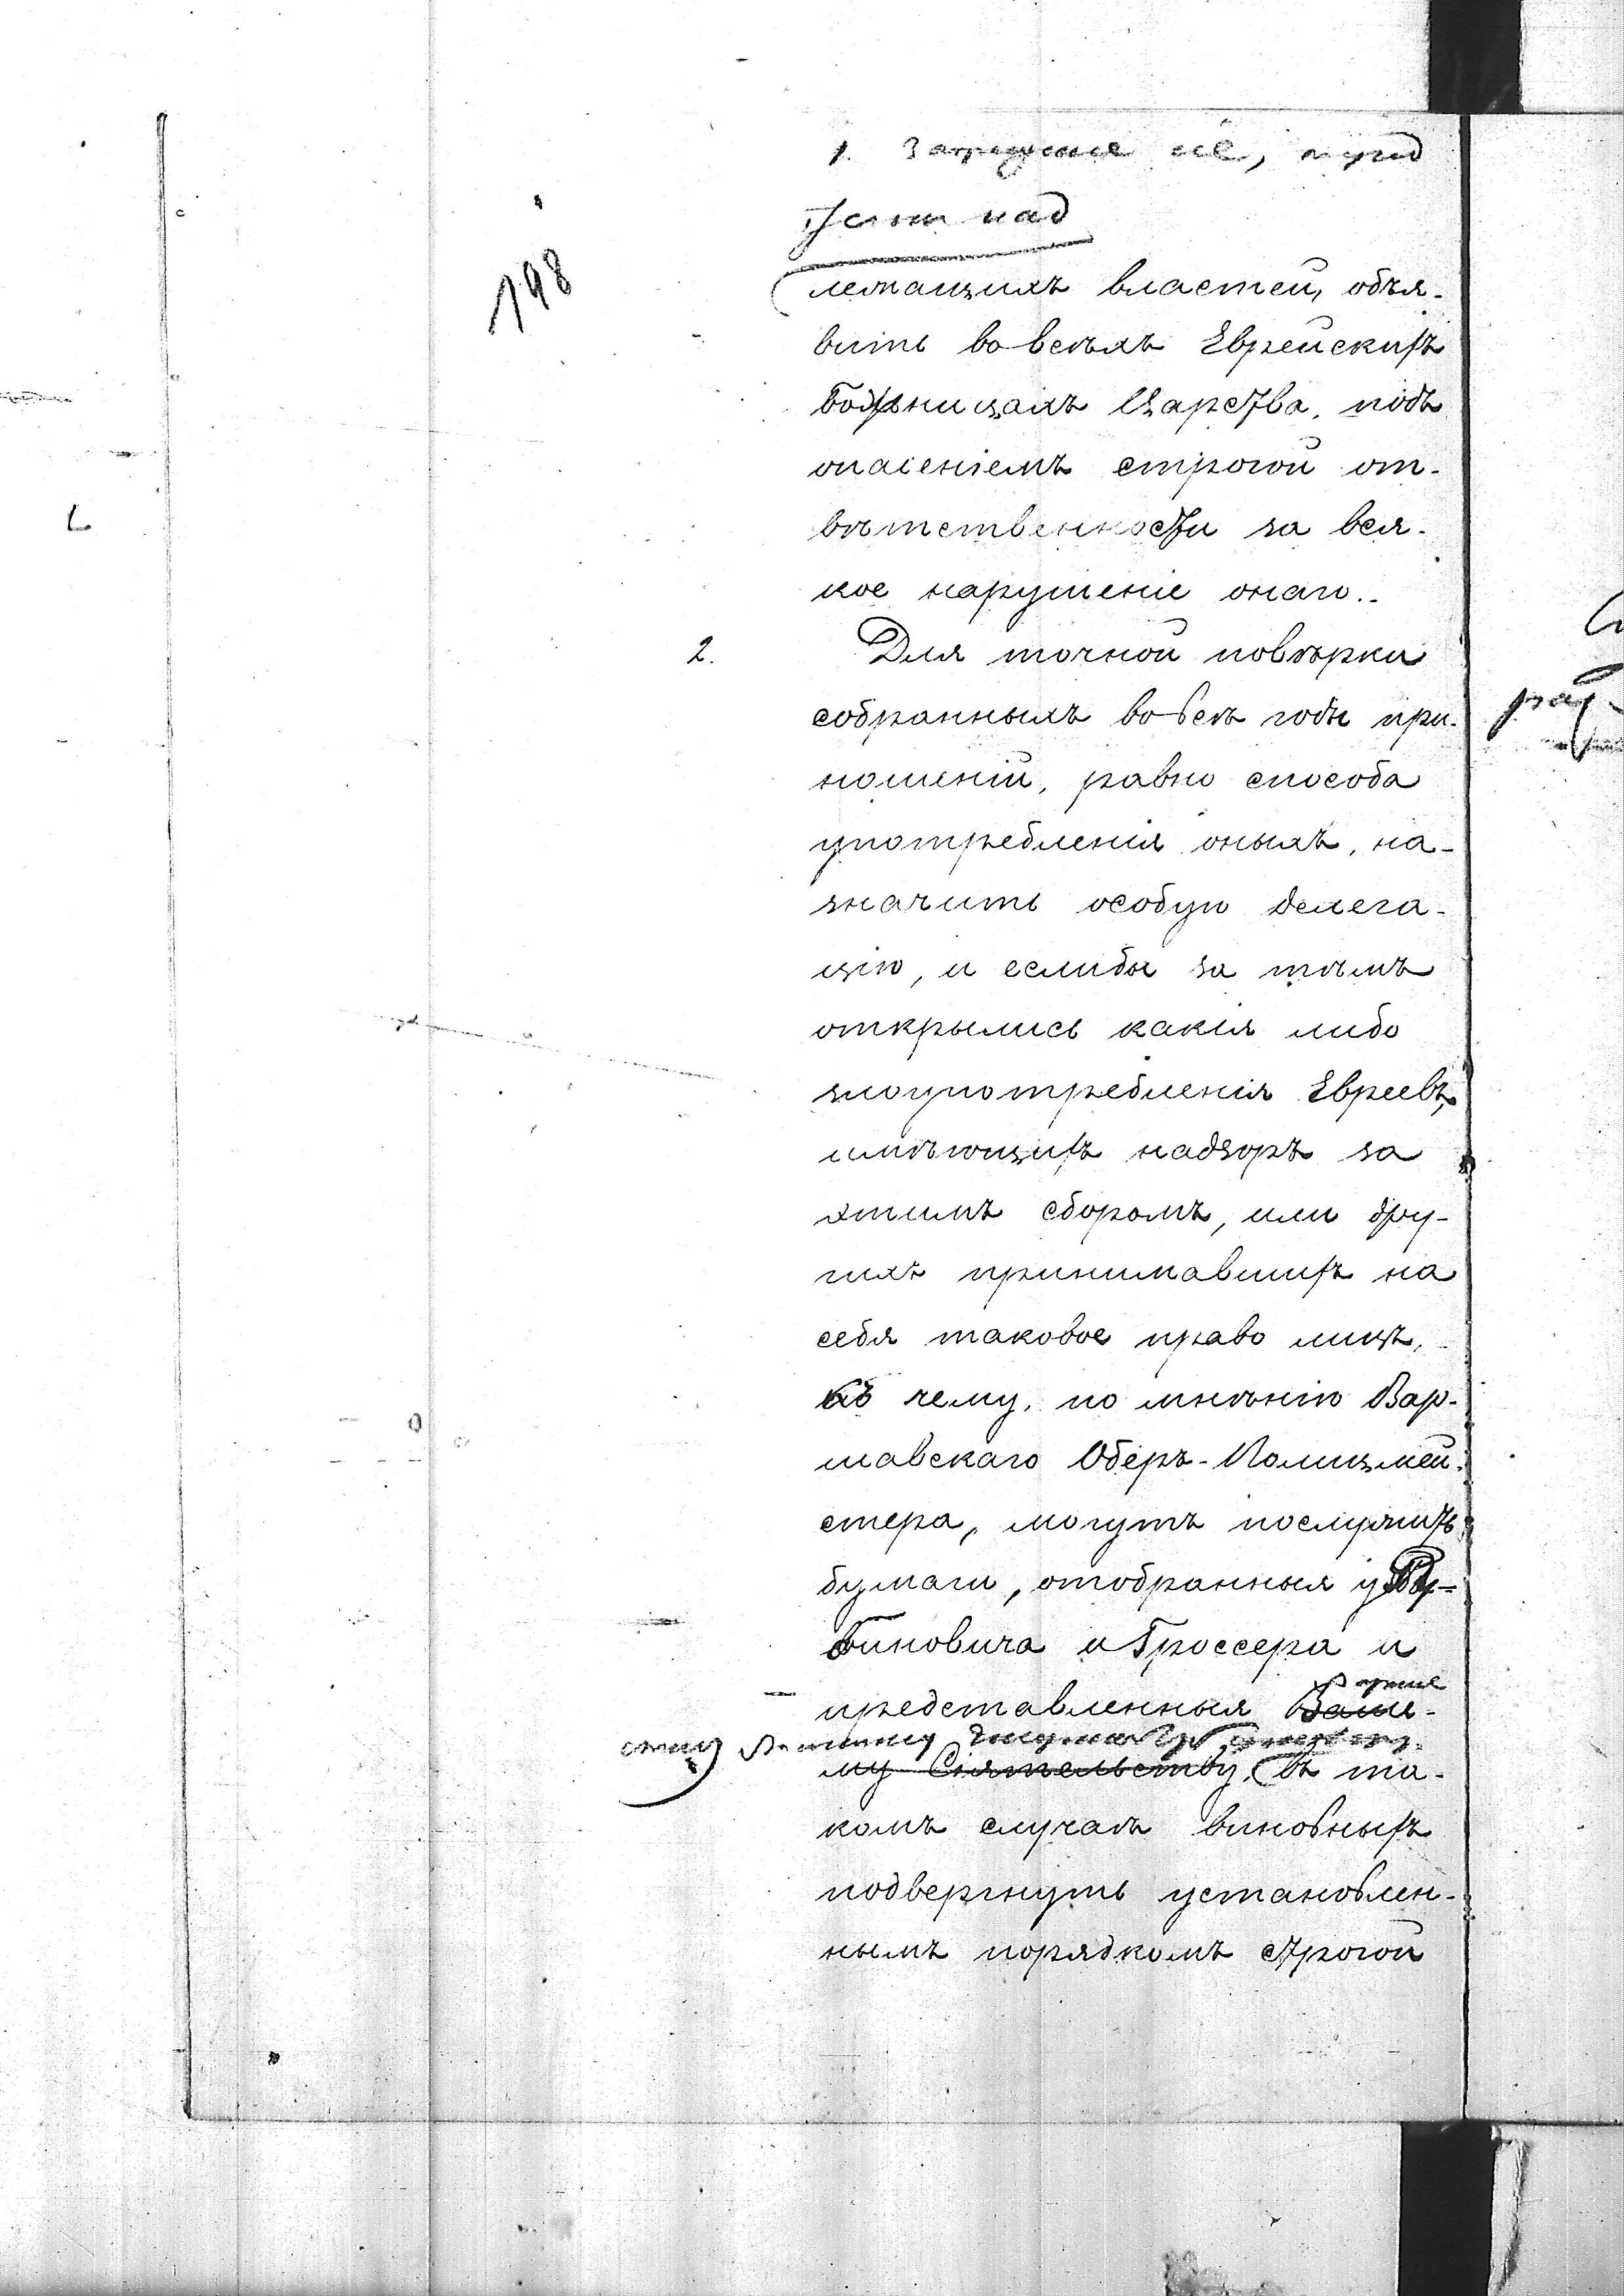 1. Запрещение сіе, чрезъ
над
198
лежащихъ властей, объя-
вить во всѣхъ Еврейскихъ
божницахъ Царства, подъ
опасеніемъ строгой от-
вѣтственности за вся-
кое нарушеніе онаго.-
2. Для точной повѣрки
собранныхъ во всѣ годы при-
ношеній, равно способа
употребленія оныхъ, на-
значить особую делега-
цію, и еслибы за тѣмъ
открылись какія либо
злоупотребленія Евреевъ,
имѣющихъ надзоръ за
этимъ сборомъ, или дру-
гихъ принимавшихъ на
себя таковое право лицъ,
къ чему, по мнѣнію Вар-
шавскаго Оберъ-Полицмей-
стера, могутъ послужить
бумаги, отобранныя у Ру-
биновича и Гроссера и
представленныя Ваше-
му Сіятельству, въ та-
комъ случаѣ виновныхъ
подвергнуть установлен-
нымъ порядкомъ строгой